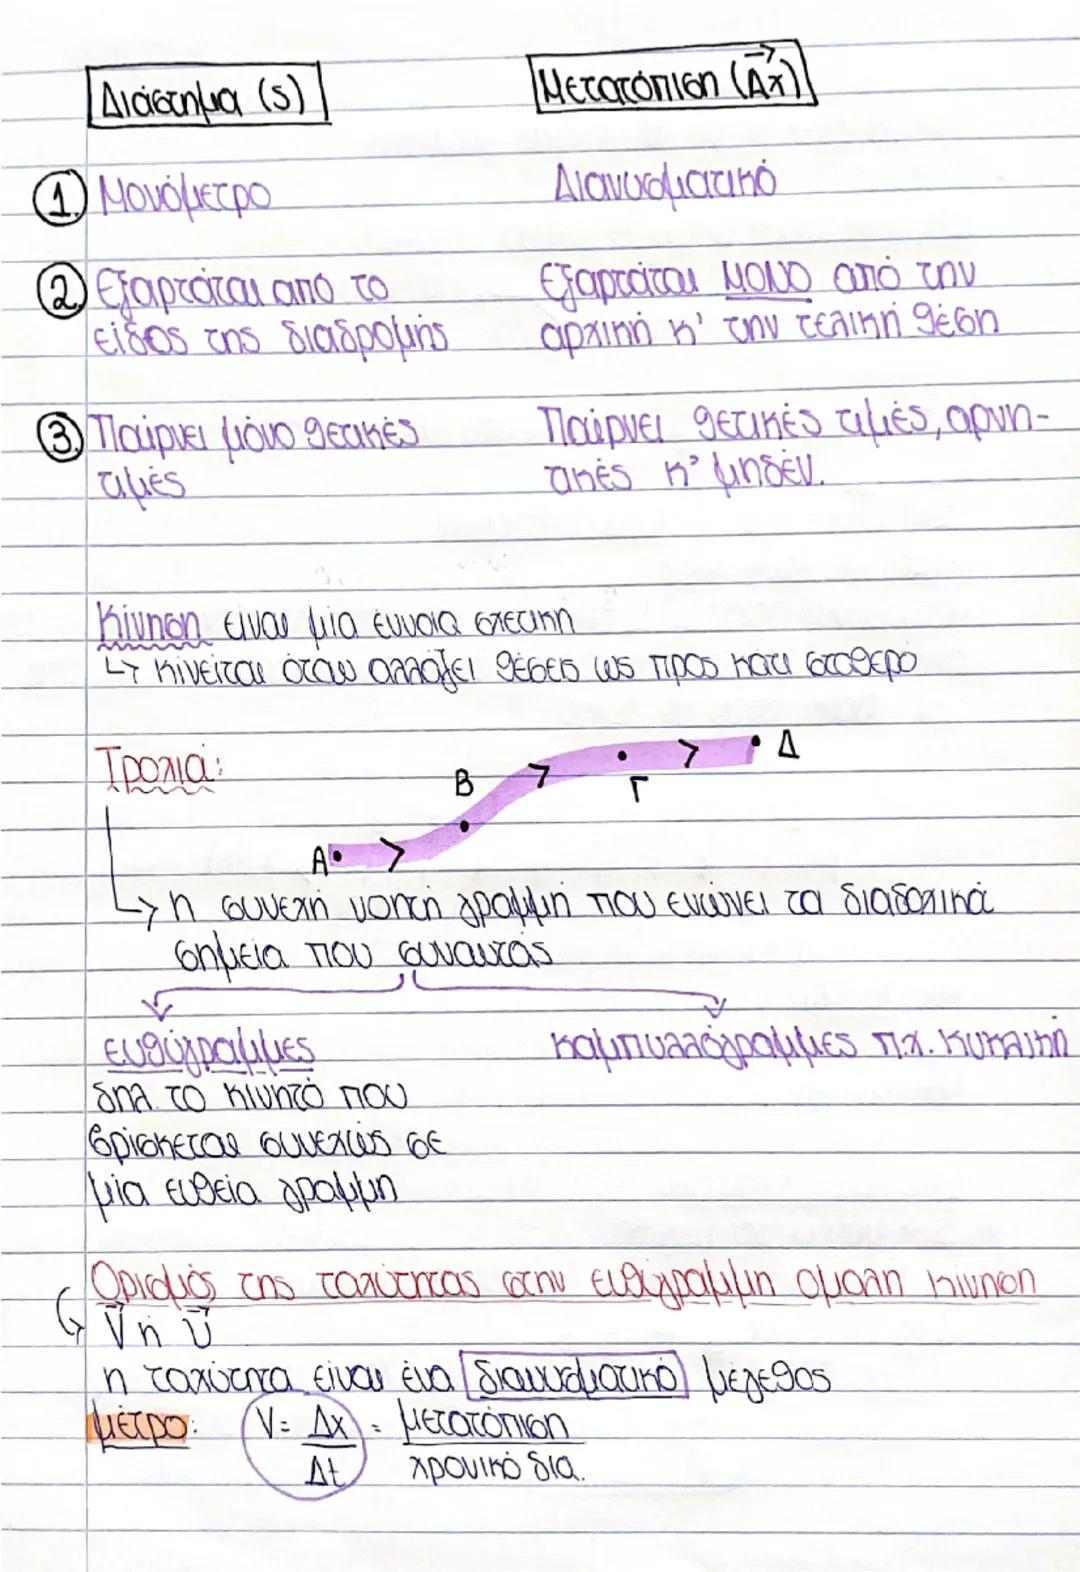 Διάστημα (s)
Μετατόπιση (Δx)
1. Μονόμετρο
Διανυσματικό
2. Εξαρτάται από το
είδος της διαδρομής
Εξαρτάται ΜΟΝΟ από την
αρχική κ' την τελική θέση
3. Παίρνει μόνο θετικές
τιμές
Παίρνει θετικές τιμές, αρνη-
τικές κ' μηδέν.
Κίνηση είναι μία έννοια σχετική
↳ κινείται όταν αλλάζει θέσεις ως προς κάτι σταθερό
Τροχιά:
Α Β Γ Δ
↳ η συνεχή νοητή γραμμή που ενώνει τα διαδοχικά
σημεία που συναντάς
ευθύγραμμες
καμπυλλόγραμμες π.χ. κυκλική
δηλ. το κινητό που
βρίσκεται συνεχώς σε
μία ευθεία γραμμη
Ορισμός της ταχύτητας στην ευθύγραμμη ομαλη κίνηση
V ή υ
η ταχύτητα είναι ένα διανυσματικό μέγεθος
μέτρο: V = Δx/Δt = μετατόπιση/χρονικό δια.